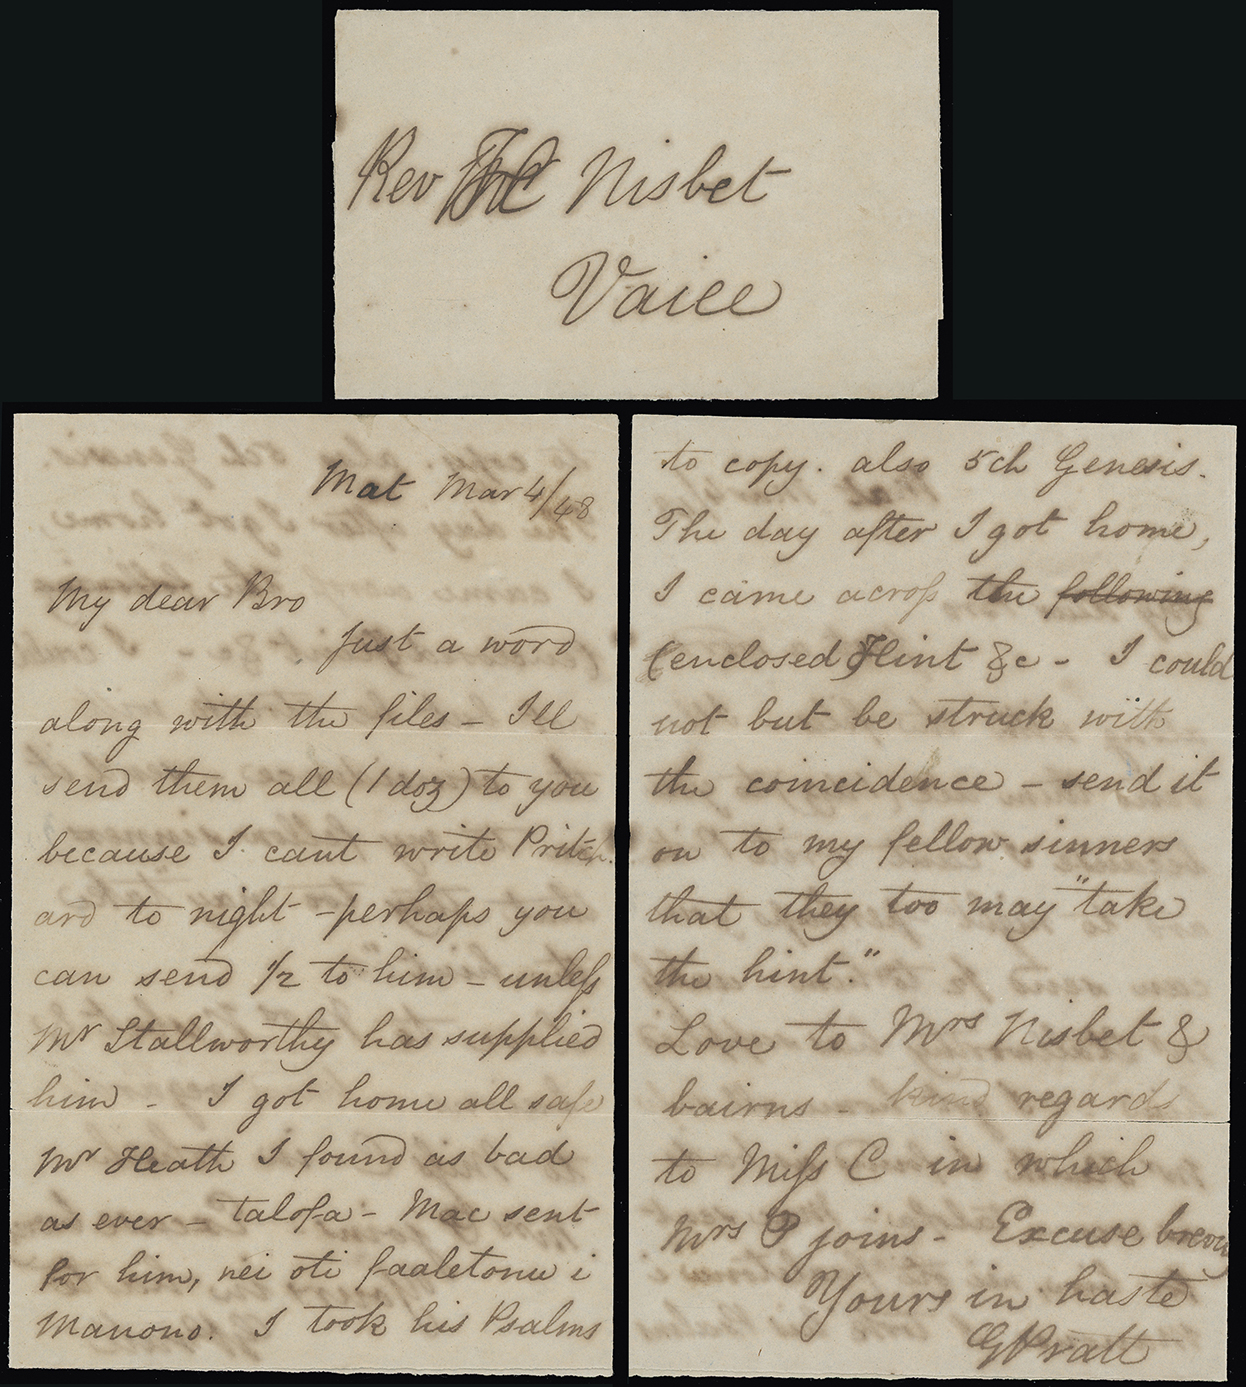 Rev Nisbet
Vaiee
Mat Mar 4/48
My dear Bro
Just a word
along with the files – I'll
send them all (1 doz) to you
because I cant write Pritch
ard to night – perhaps you
can send 1/2 to him – unless
Mr Stallworthy has supplied
him – I got home all safe
Mr Heath I found as bad
as ever – talofa – Mac sent
for him, nei oti faaletonu i
Manono. I took his Psalms
to copy. also 5 ch Genesis.
The day after I got home,
I came across the following
(enclosed) Hint &c – I could
not but be struck with
the coincidence – send it
on to my fellow sinners
that they too may "take
the hint."
Love to Mrs Nisbet &
bairns – kind regards
to Miss C in which
Mrs P joins – Excuse brevy
Yours in haste
G Pratt